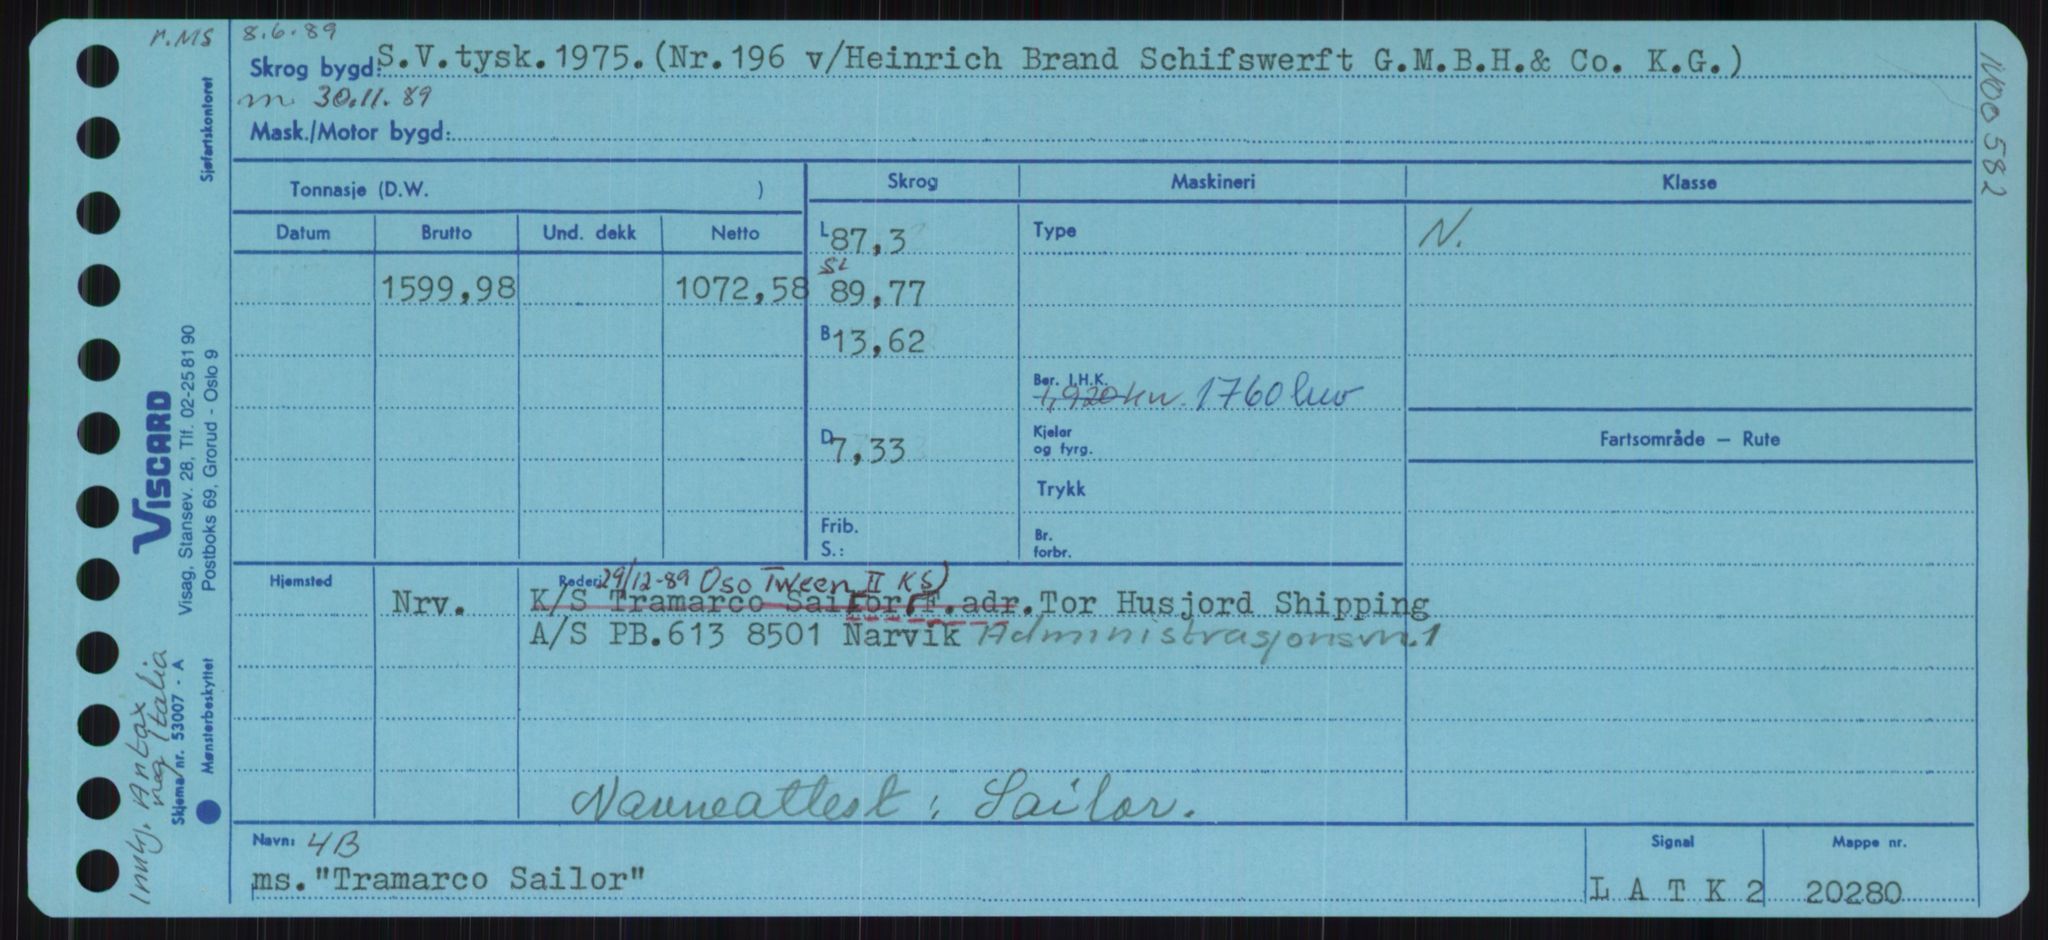 r.MS 8.6.89
Skrog bygd: S.V.tysk.1975.(Nr.196 v/Heinrich Brand Schifswerft G.M.B.H.& Co. K.G.)
m 30.11.89
Mask./Motor bygd:
Sjøfartskontoret
N00582
Tonnasje (D.W. )
Skrog Maskineri Klasse
Datum Brutto Und. dekk Netto
L 87,3 Type N.
1599,98 1072,58 SL 89,77
B 13,62
Ber. I.H.K.
1,920 kw. 1760 kw
D 7,33 Kjeler
og fyrg.
Fartsområde – Rute
Trykk
Frib.
S.:
Br.
forbr.
VISCARD
Visag, Stansev. 28, Tlf. 02-25 81 90
Postboks 69, Grorud - Oslo 9
Skjema nr. 53007 - A
Mønsterbeskyttet
Innkj. Antax
reg Italia
Hjemsted Rederi 29/12-89 Oso Tween II KS)
Nrv. K/S Tramarco Sailor, F.adr. Tor Husjord Shipping
A/S PB.613 8501 Narvik Administrasjonsvn.1
Navneattest: Sailor.
Navn: 4B Signal Mappe nr.
ms."Tramarco Sailor" L A T K 2 20280